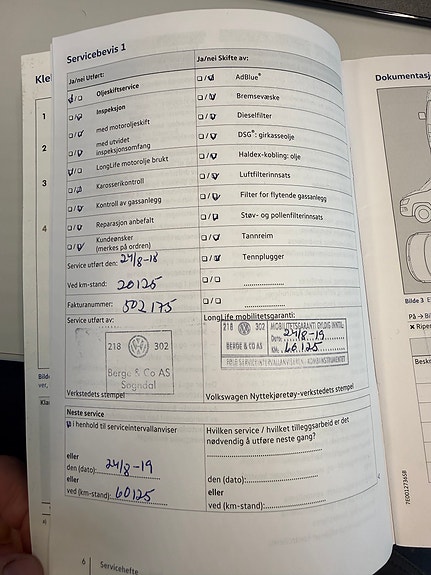 Servicebevis 1
Ja/nei Utført:
Oljeskiftservice
Inspeksjon
med motoroljeskift
med utvidet
inspeksjonsomfang
LongLife motorolje brukt
Karosserikontroll
Kontroll av gassanlegg
Reparasjon anbefalt
Kundeønsker
(merkes på ordren)
Service utført den: 24/8-18
Ved km-stand: 20125
Fakturanummer: 502175
Ja/nei Skifte av:
AdBlue®
Bremsevæske
Dieselfilter
DSG®: girkasseolje
Haldex-kobling: olje
Luftfilterinnsats
Filter for flytende gassanlegg
Støv- og pollenfilterinnsats
Tannreim
Tennplugger
Service utført av:
218 302
Berge & Co AS
Sogndal
Verkstedets stempel
LongLife mobilitetsgaranti:
218 302
BERGE & CO AS
MOBILITETSGARANTI GYLDIG INNTIL:
Dato: 24/8-19
KM: 60.125
FØLG SERVICEINTERVALLANVISEREN I KOMBIINSTRUMENTET
Volkswagen Nyttekjøretøy-verkstedets stempel
Neste service
i henhold til serviceintervallanviser
eller
den (dato): 24/8-19
eller
ved (km-stand): 60125
Hvilken service / hvilket tilleggsarbeid er det
nødvendig å utføre neste gang?
den (dato):
eller
ved (km-stand):
6 Servicehefte
1
2
3
4
Dokumentasj
Bilde 3
7E0012736SB